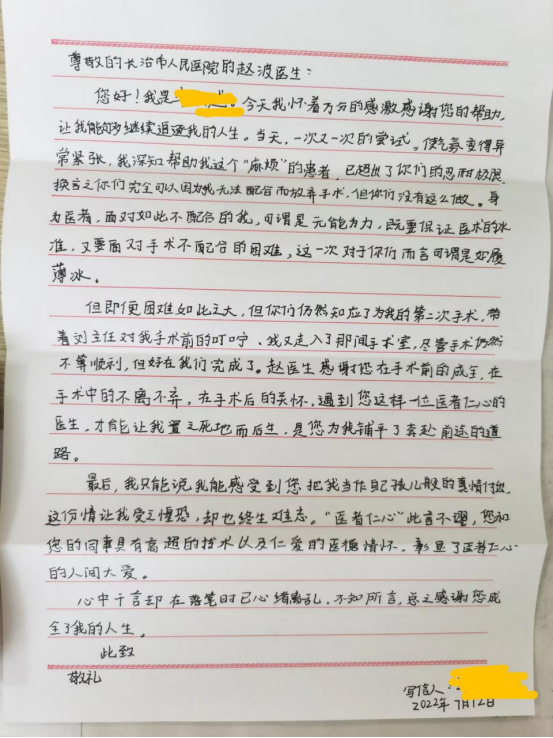 尊敬的长治市人民医院的赵波医生：
您好！我是 。今天我怀着万分的感激感谢您的帮助,
让我能够继续追逐我的人生。当天，一次又一次的尝试。使气氛变得异
常紧张，我深知帮助我这个“麻烦”的患者，已超出了你们的忍耐极限,
换言之你们完全可以因为我无法配合而放弃手术，但你们没有这么做。身
为医者，面对如此不配合的我，可谓是无能为力，既要保证医术的水
准，又要面对手术不配合的困难，这一次对于你们而言可谓是如履
薄冰。
但即便困难如此之大，但你们仍然知应了为我的第二次手术，带
着刘主任对我手术前的叮咛、我又走入了那间手术室，尽管手术仍然
不算顺利，但好在我们完成了。赵医生感谢您在手术前的成全，在
手术中的不离不弃，在手术后的关怀，遇到您这样一位医者仁心的
医生，才能让我置之死地而后生，是您为我铺平了奔赴前途的道
路。
最后，我只能说我能感受到您把我当作自己孩儿般的真情付出,
这份情让我受之惶恐，却也终生难忘。“医者仁心”此言不谬，您和
您的同事具有高超的技术以及仁爱的医德情怀，彰显了医者仁心
的人间大爱。
心中千言却在落笔时已心绪离乱，不知所言，总之感谢您成
全了我的人生。
此致
敬礼
写信人：
2022年7月12日